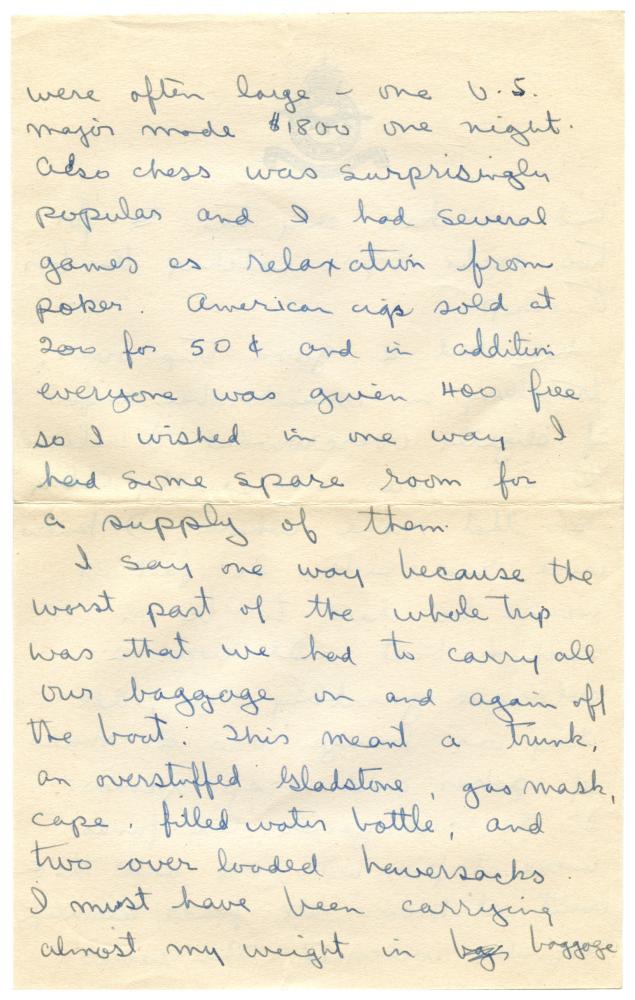 were often large – one U.S.
major made $1800 one night.
Also chess was surprisingly
popular and I had several
games as relaxation from
poker. American cigs sold at
200 for 50¢ and in addition
everyone was given 400 free
so I wished in one way I
had some spare room for
a supply of them.
I say one way because the
worst part of the whole trip
was that we had to carry all
our baggage on and again off
the boat. This meant a trunk,
an overstuffed Gladstone, gas mask,
cape, filled water bottle, and
two over loaded haversacks.
I must have been carrying
almost my weight in bag baggage